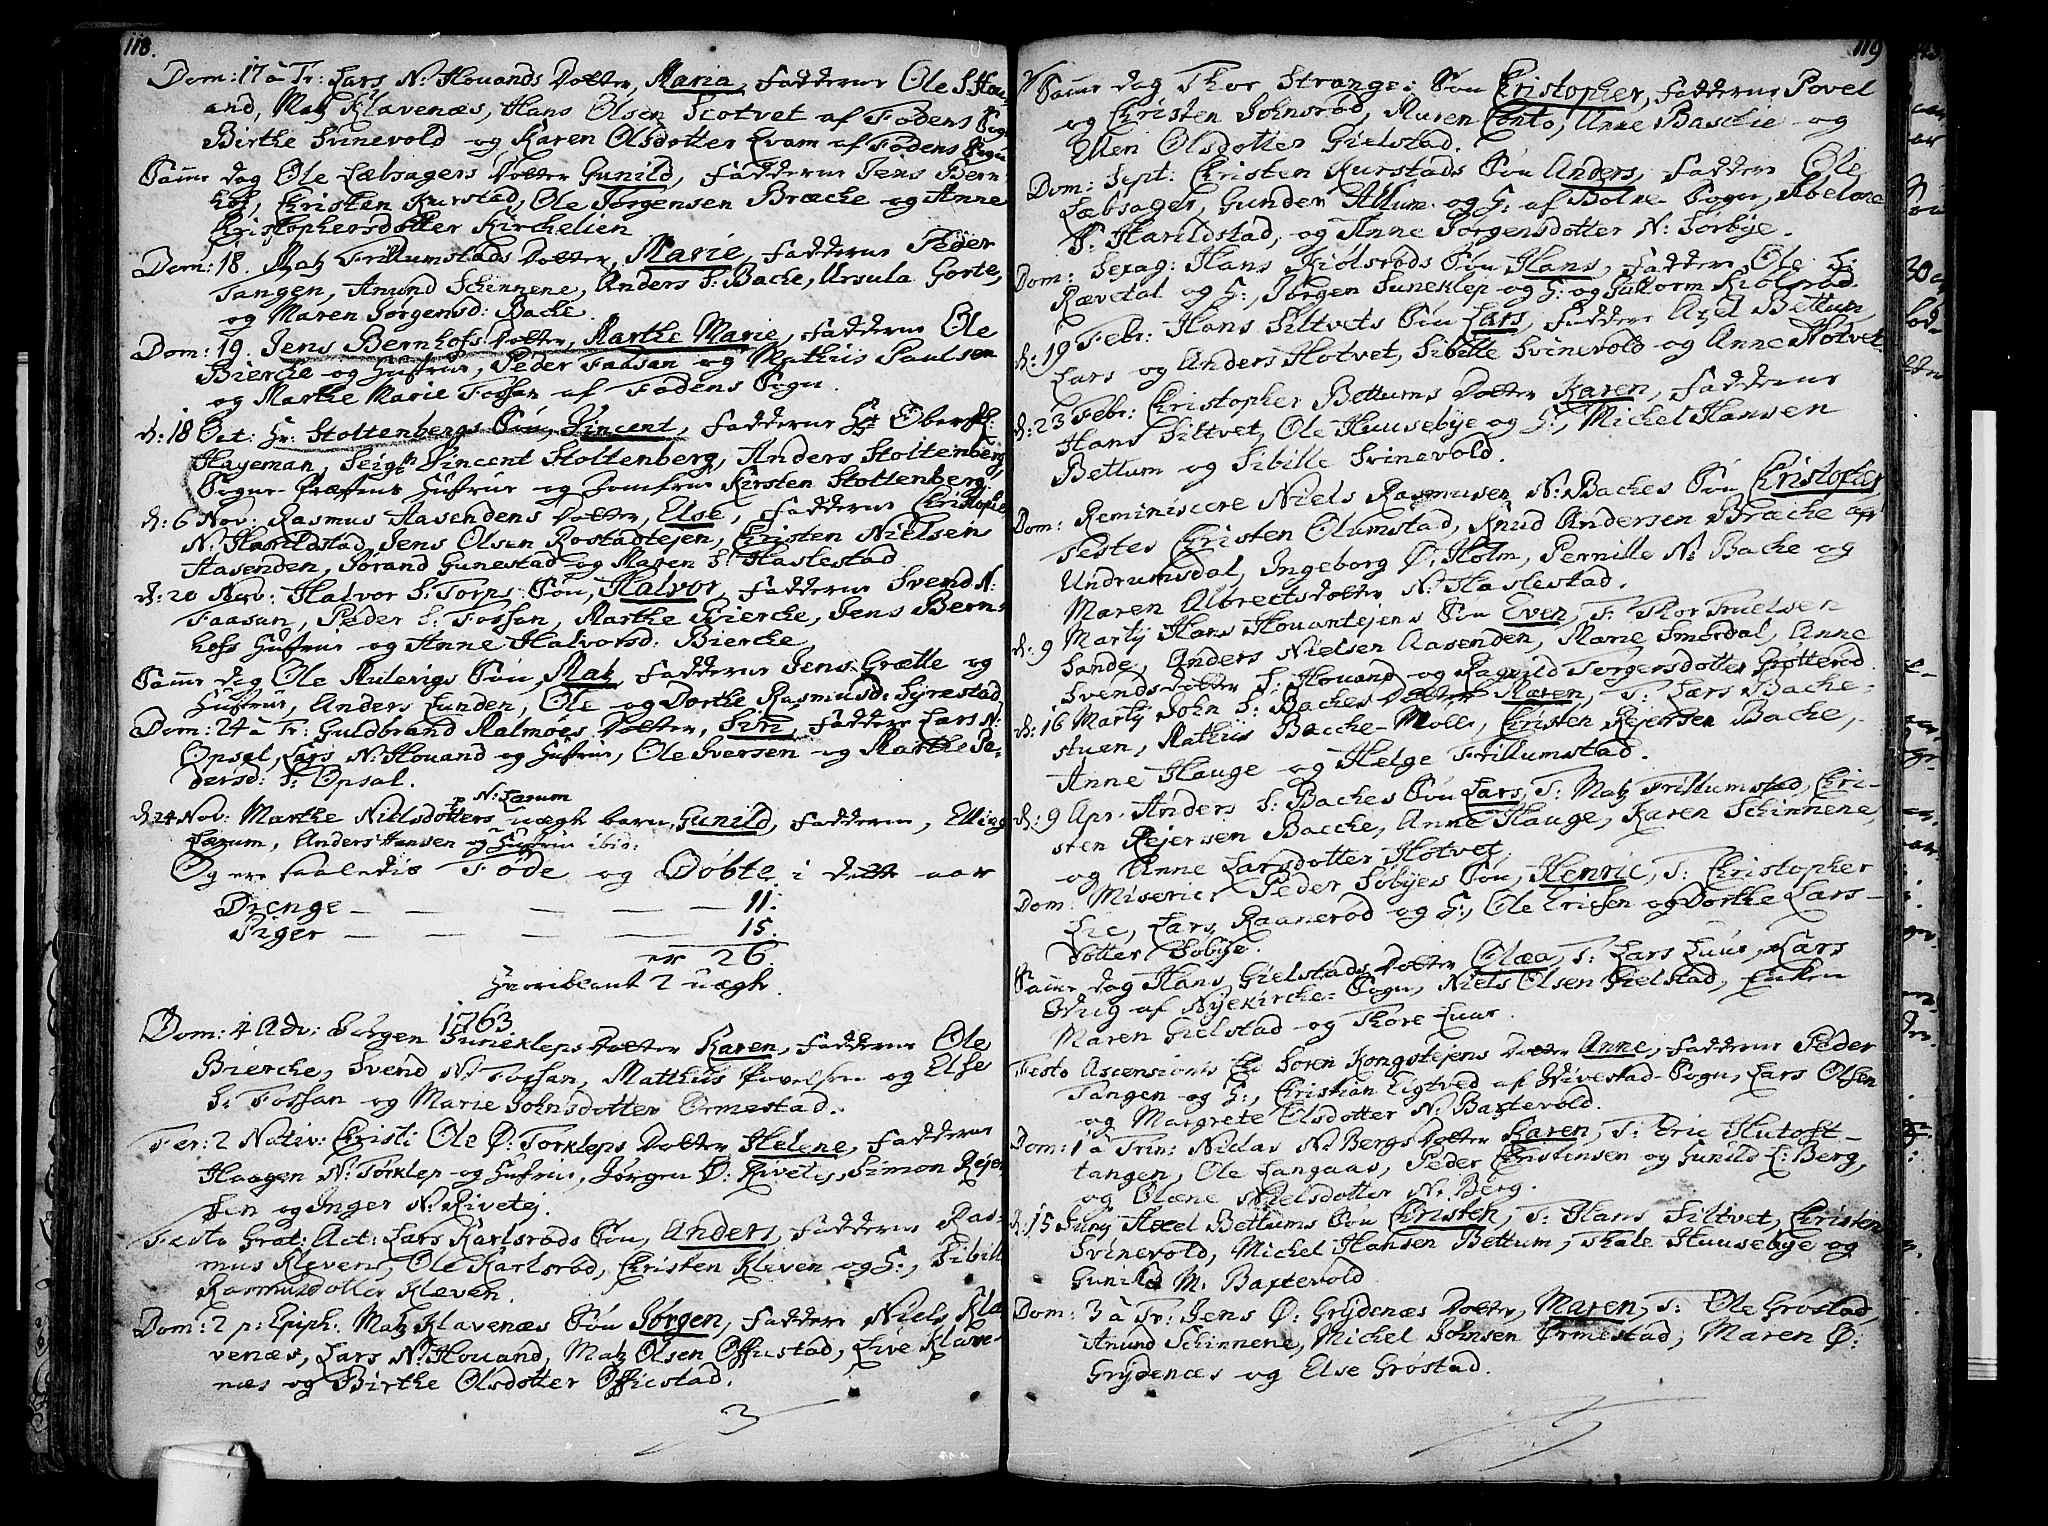 118.
Dom: 17 à Tr: Lars N: Houands Dotter, Maria, Fadderne Ole S. Hou-
and, Matz Klavenæs, Hans Olsen Scotvet af Fødens Sogn
Birthe Svinevold og Karen Olsdotter Qvam af Fødens Sogn
Samme dag Ole Læbsagers Dotter Gunild, Fadderne Jens Bern-
hof, Christen Rurstad, Ole Jørgensen Bræche og Anne
Christophersdotter Kirchelien
Dom: 18. Matz Trillumstads Dotter, Marie, Fadderne Peder
Tangen, Anund Schinnene, Anders S: Bache, Ursula Gorte,
og Maren Jørgensd: Bache.
Dom: 19. Jens Bernhofs Dotter, Marthe Marie, Fadderne Ole
Bierche og Hustrue, Peder Faasan og Mathiis Paulsen
og Marthe Marie Fossan af Fødens Sogn.
d: 18 Oct: Hr: Stoltenbergs Søn, Vincent, Fadderne Hr Oberstl:
Hageman, Seigr Vincent Stoltenberg, Anders Stoltenberg,
Sogne-Præstens Hustrue og Jomfrue Kirsten Stoltenberg.
d: 6 Nov: Rasmus Aasendens Dotter, Else, Fadderne Christopher
N: Harildstad, Jens Olsen Rostadtejen, Christen Nielsen
Aasenden, Jorand Gunestad og Maren S: Haslestad
d: 20 Nov: Halvor S: Torps Søn, Halvor, Fadderne Svend N:
Faasan, Peder S: Fossan, Marthe Bierche, Jens Bern-
hofs Hustrue og Anne Halvorsd: Bierche,
Samme dag Ole Mulevigs Søn, Matz, Fadderne Jens Grætte og
Hustrue, Anders Lunden, Ole og Dorthe Rasmusd: Syrestad,
Dom: 24 à Tr: Guldbrand Malmøes Dotter, Siri, Faddere Lars N:
Opsal, Lars N: Houand og Hustrue, Ole Iversen og Marthe Pe-
dersd: S: Opsal.
N: Lærum
d. 24 Nov: Marthe Nielsdotters uægte barn, Gunild, Fadderne, Elling
Lærum, Anders Hansen og Hustrue ibid:
Og ere saaledis Føde og Døbte i dette aar
Drenge — — — — — 11:
Piger — — — — — 15.
er 26.
Hvoriblant 2 uægte.
1763
Dom: 4 Adv: Jørgen Sunekleps Dotter Karen, Fadderne Ole
Bierche, Svend N: Fossan, Matthiis Povelsen og Else
S: Fossan og Marie Johnsdotter Ormestad.
Fer: 2 Nativ: Christi Ole Ø: Torkleps Dotter, Helene, Fadderne
Haagen N: Torklep og Hustrue, Jørgen Ø: Rivetej, Simon Rejer-
sen og Inger N: Rivetej.
Festo Grat: Act: Lars Karlsrøds Søn, Anders, Fadderne Ras-
mus Kleven, Ole Karlsrød, Christen Kleven og H:, Sibille
Rasmusdotter Kleven.
Dom: 2 p: Epiph: Matz Klavenæs Søn Jørgen, Faddere Niels Kla-
venæs, Lars N: Houand, Matz Olsen Offiestad, Live Klave-
næs og Birthe Olsdotter Offiestad.
3
119
Samme dag Thor Stranges Søn Christopher, Fadderne Povel
og Christen Johnsrød, Maren Conto, Anne Basche og
Ellen Olsdotter Gielstad.
Dom: Sept: Christen Rurstads Søn Anders, Faddere Ole
Læbsager, Gunder Allum og H: af Botne Sogn, Abelone
S. Harildstad, og Anne Jørgensdotter N: Sørbye.
Dom: Sexag: Hans Kiølsrøds Søn Hans, Faddere Ole L:
Rævetal og H:, Jørgen Suneklep og H: og Guttorm Kiølsrød
d: 19 Febr: Hans Siltvets Søn Lars, Faddere Axel Bettum,
Lars og Anders Hotvet, Sibille Svinevold og Anne Hotvet.
d: 23 Febr: Christopher Bettums Dotter Karen, Fadderne
Hans Siltvet, Ole Huusebye og H:, Michel Hansen
Bettum og Sibille Svinevold.
Dom: Reminiscere Niels Rasmusen N: Baches Søn Christopher,
Testes Christen Olumstad, Knud Andersen Bræche af
Undrumsdal, Ingeborg Ø: Holm, Pernille N: Bache og
Maren Albrectsdotter N: Haslestad.
d: 9 Martij Hans Houantejens Søn Even, T: Thor Truelsen
Sande, Anders Nielsen Aasenden, Marie Smørdal, Anne
Svendsdotter S: Houand og Ragnild Torgersdotter Grøttend
d: 16 Martij John S: Baches Dotter Maren, T: Lars Bache-
stuen, Mathiis Bacche-Molle, Christen Rejersen Bache,
Anne Hauge og Helge Trillumstad.
d: 9 Apr: Anders S: Baches Søn Lars, T: Matz Trillumstad, Chri-
sten Rejersen Bacche, Anne Hauge, Karen Schinnene,
og Anne Larsdotter Hotvet,
Dom: Miseric: Peder Søbyes Søn, Henric, T: Christopher
Lie, Lars Raanerød og H:, Ole Ericsen og Dorthe Lars-
dotter Søbye.
Samme dag Hans Gielstads Dotter Olæa, T: Lars Luur, Lars
Wiig af Nyekirche-Sogn, Niels Olsen Gielstad, Enken
Maren Gielstad og Thore Luur.
Festo Ascensionis Chr: Søren Kongstejens Dotter Anne, Fadderne Peder
Tangen og H:, Christian Eigtved af Wivestad-Sogn, Lars Olsen
og Margrete Olsdotter N: Baxtevold.
Dom: 1 à Trin: Niclas N: Bergs Dotter Karen, T: Eric Hutoft-
tangen, Ole Langaas, Peder Christensen og Gunild L: Berg,
og Olæne Nielsdotter N: Berg.
d: 15 Junij Axel Bettums Søn Christen, T: Hans Siltvet, Christen
Svinevold, Michel Hansen Bettum, Thale Huusebye og
Gunild M. Baxtevold.
Dom: 3 à Tr: Jens Ø: Grydenæs Dotter, Maren, T: Ole Grøstad,
Anund Schinnene, Michel Johnsen Ormestad, Maren Ø:
Grydenæs og Else Grøstad.